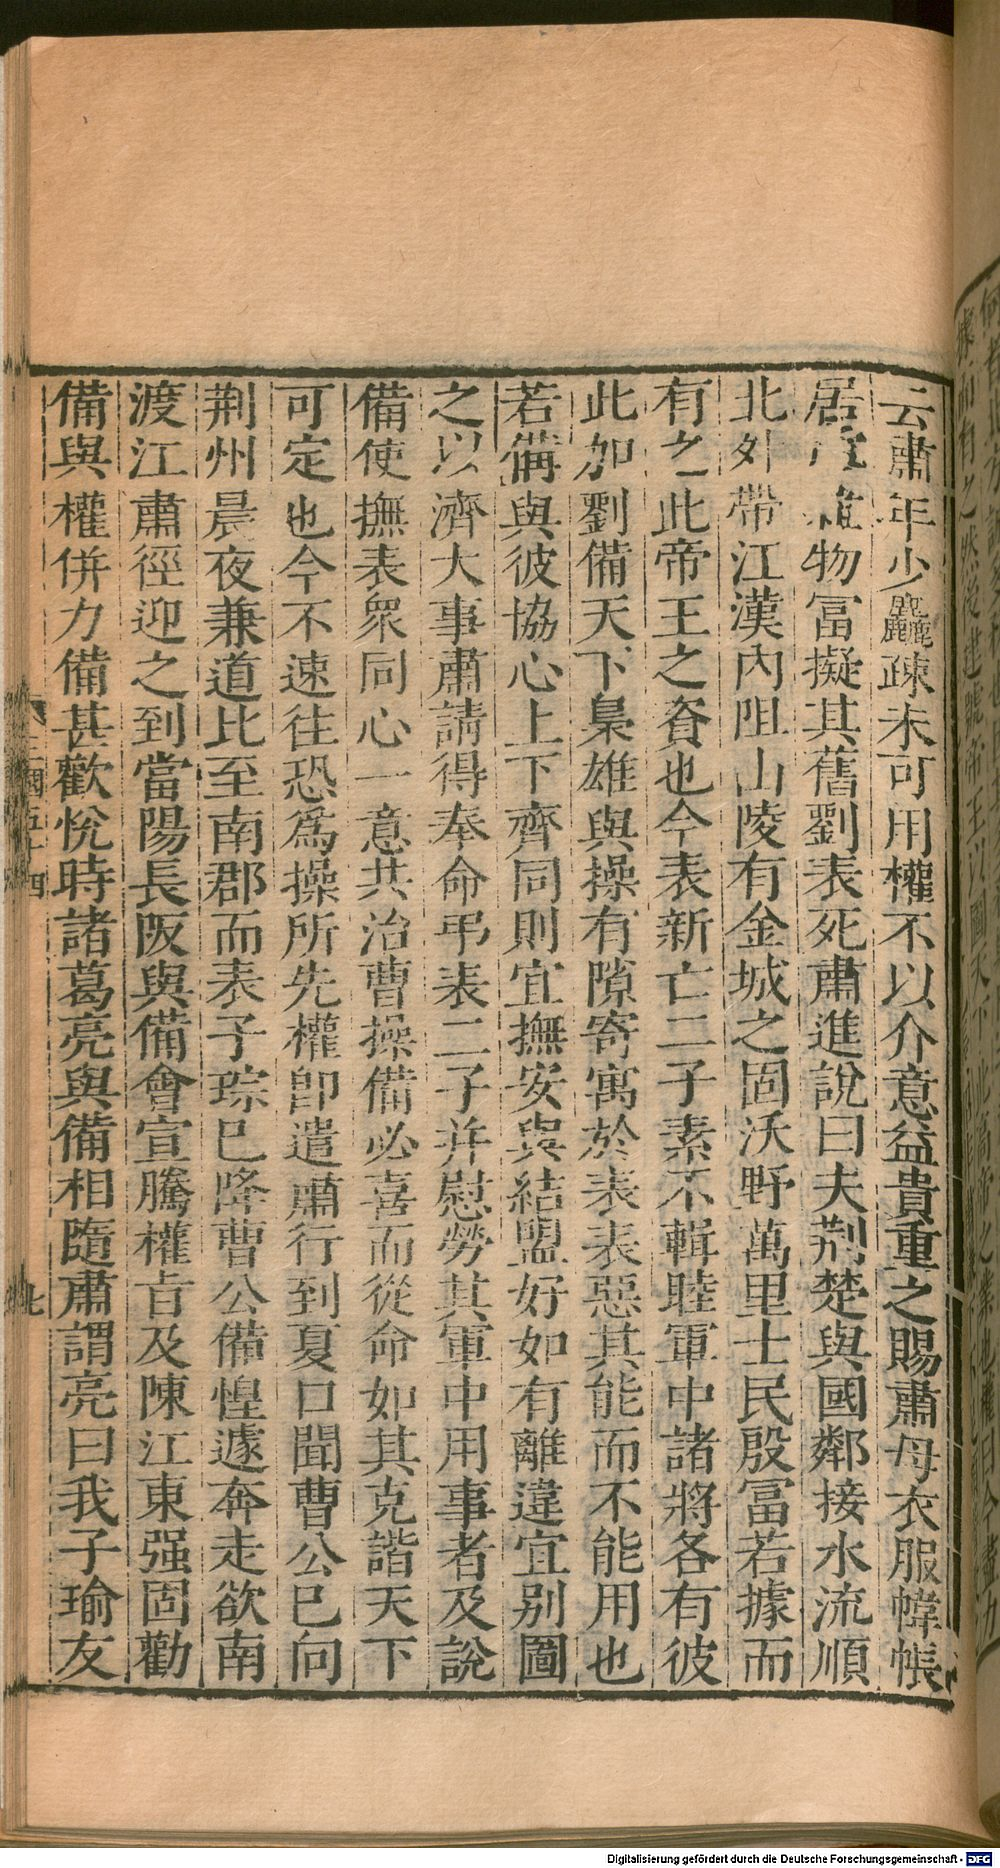 云肅年少麤疎未可用權不以介意益貴重之賜肅母衣服幃帳
居處雜物冨擬其舊劉表死肅進說曰夫荆楚與國鄰接水流順
北外帶江漢內阻山陵有金城之固沃野萬里士民殷冨若據而
有之此帝王之資也今表新亡二子素不輯睦軍中諸將各有彼
此加劉備天下梟雄與操有隙寄寓於表表惡其能而不能用也
若備與彼協心上下齊同則宜撫安與結盟好如有離違宜别圖
之以濟大事肅請得奉命弔表二子并慰勞其軍中用事者及說
備使撫表衆同心一意共治曹操備必喜而從命如其克諧天下
可定也今不速往恐爲操所先權卽遣肅行到夏口聞曹公巳向
荆州晨夜兼道比至南郡而表子琮巳降曹公備惶遽奔走欲南
渡江肅徑迎之到當陽長阪與備會宣騰權旨及陳江東强固勸
備與權併力備甚歡悅時諸葛亮與備相隨肅謂亮曰我子瑜友
三國五十四
七
Digitalisierung gefördert durch die Deutsche Forschungsgemeinschaft - DFG